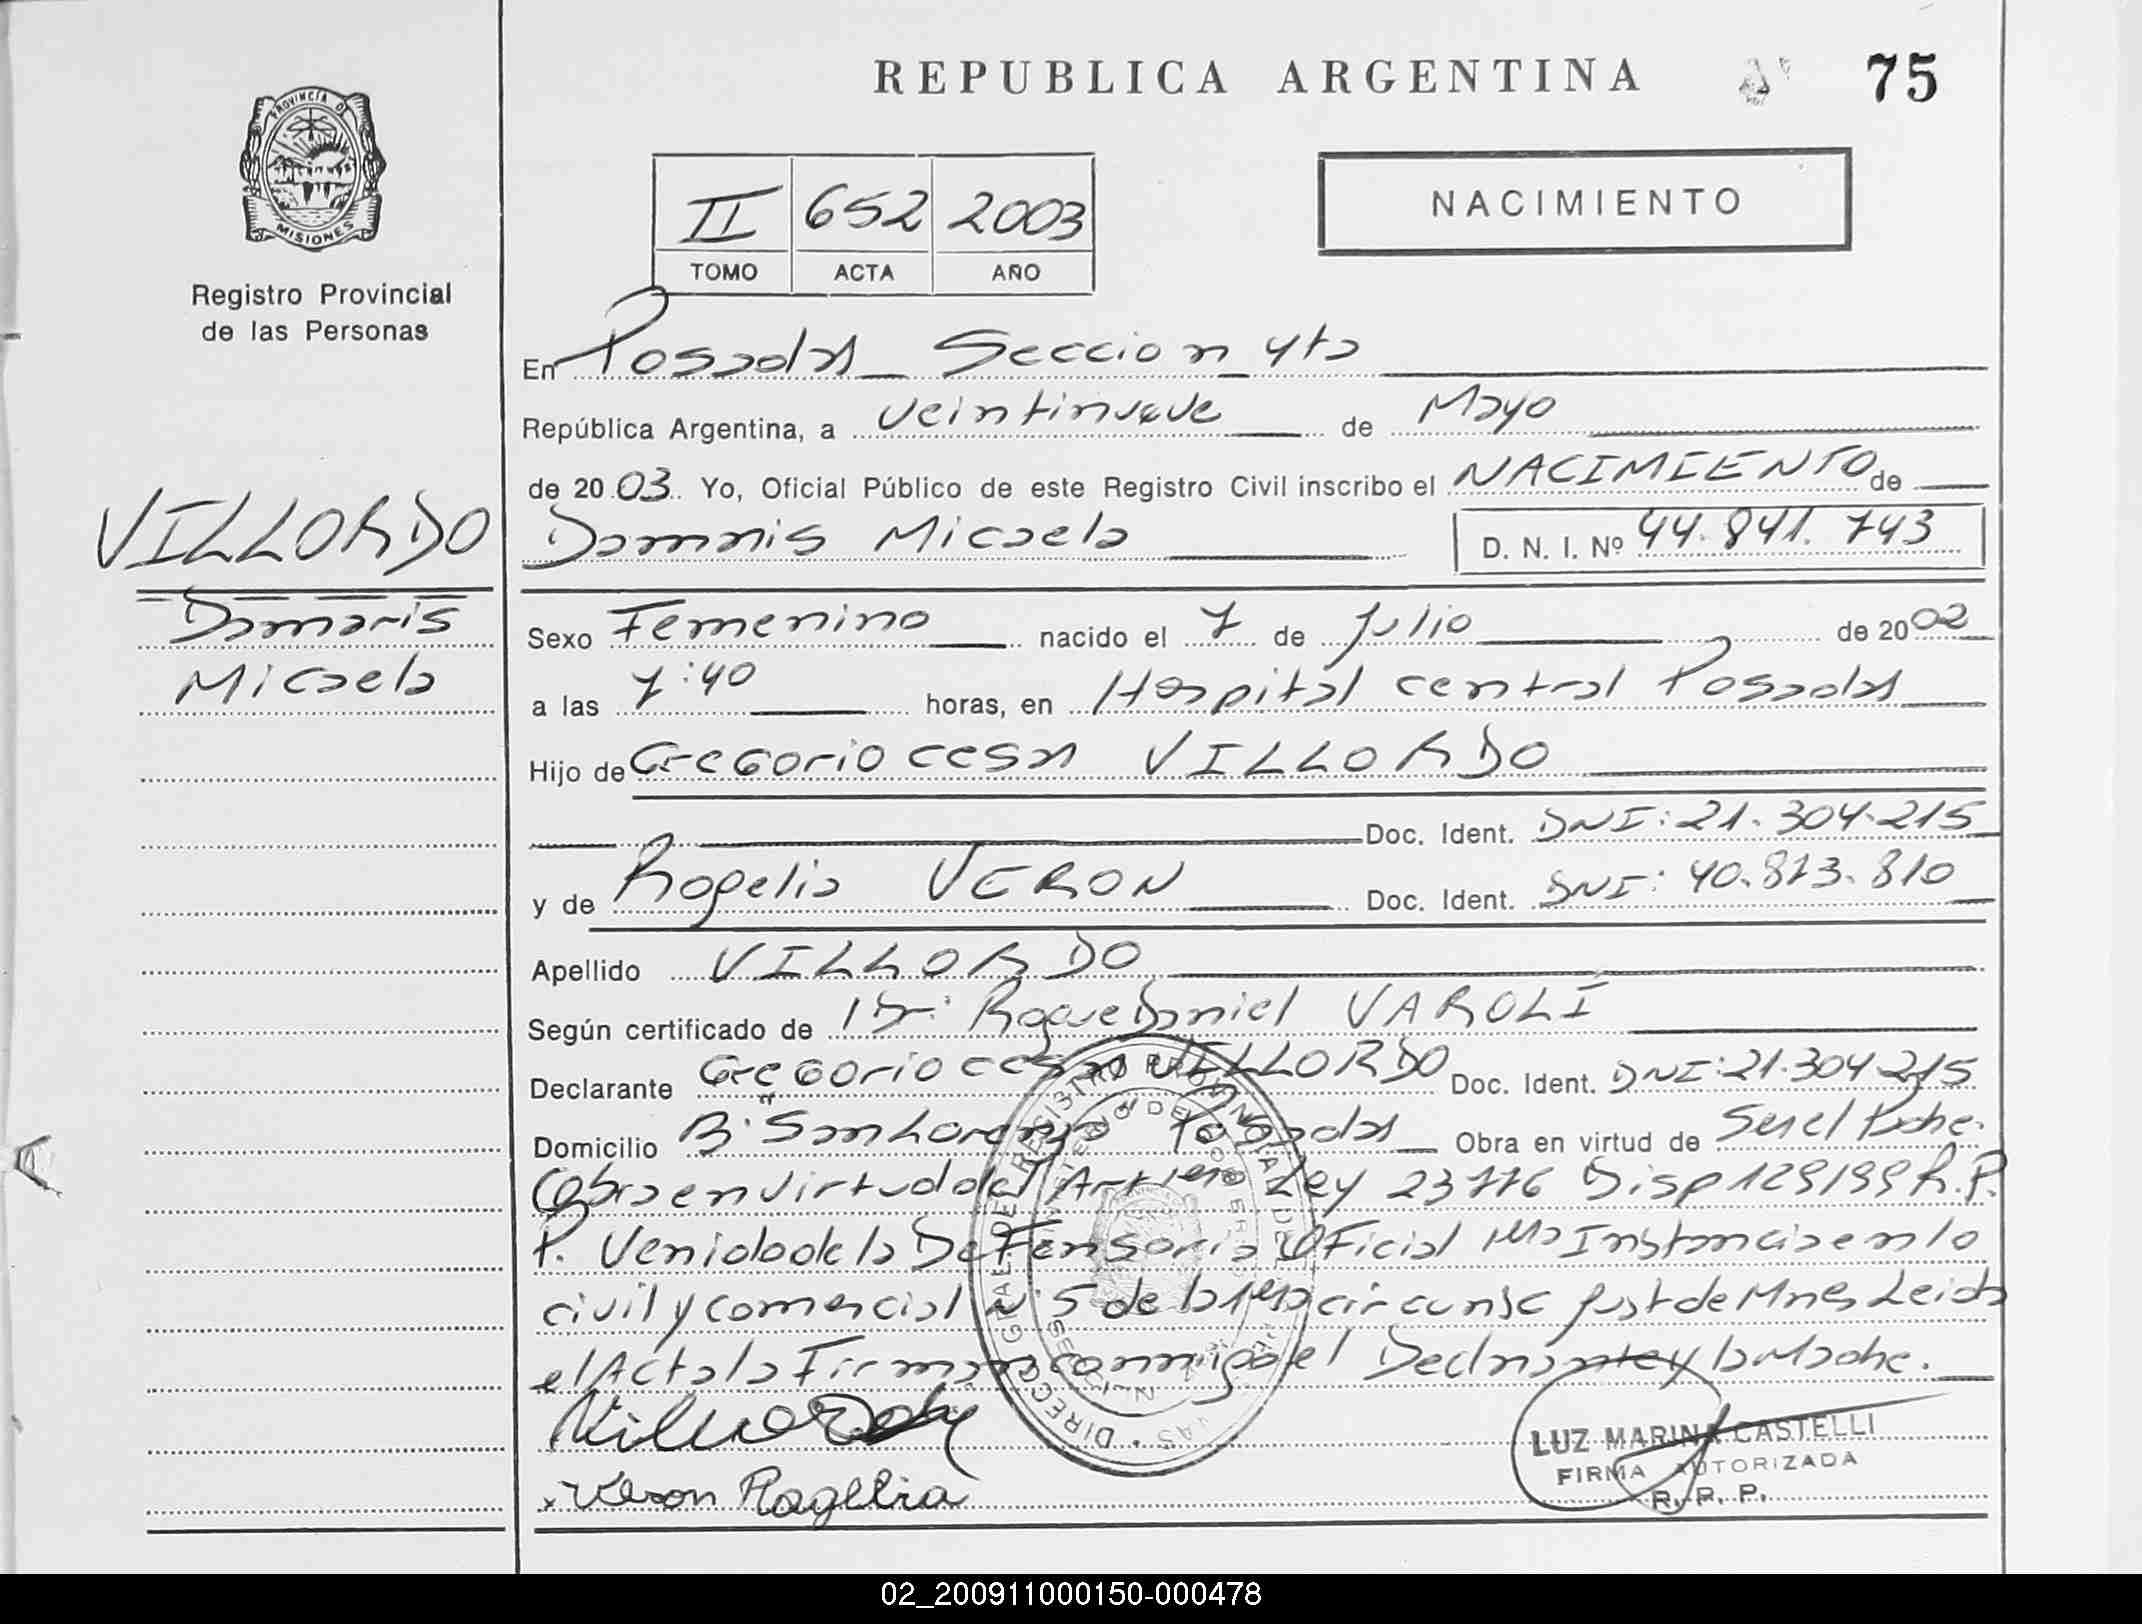 REPUBLICA ARGENTINA
75
PROVINCIA DE
MISIONES
Registro Provincial
de las Personas
II 652 2003
TOMO ACTA AÑO
NACIMIENTO
VILLORDO
Damaris
Micaela
En Posadas Seccion 4ta
República Argentina, a veintinueve de Mayo
de 2003. Yo, Oficial Público de este Registro Civil inscribo el NACIMIENTO de
Damaris Micaela D. N. I. Nº 44.841.743
Sexo Femenino nacido el 7 de Julio de 2002
a las 7:40 horas, en Hospital central Posadas
Hijo de Gregorio cesar VILLORDO
Doc. Ident. DNI: 21.304.215
y de Rogelia VERON Doc. Ident. DNI: 40.813.810
Apellido VILLORDO
Según certificado de Dr. Roque Daniel VAROLI
Declarante Gregorio cesar VILLORDO Doc. Ident. DNI: 21.304.215
Domicilio B. San Lorenzo Posadas Obra en virtud de Ser el Padre.
Obra en virtud del Art 1ero Ley 23776 Disp 129/99 R.P.
P. Venido de la Defensoria Oficial 1era Instancia en lo
civil y comercial N° 5 de la 1era circunsc Just de Mnes, Leida
el Acta la Firman conmigo el Declarante y la Madre.
Veron Rogelia
LUZ MARINA CASTELLI
FIRMA AUTORIZADA
R. P. P.
02_200911000150-000478